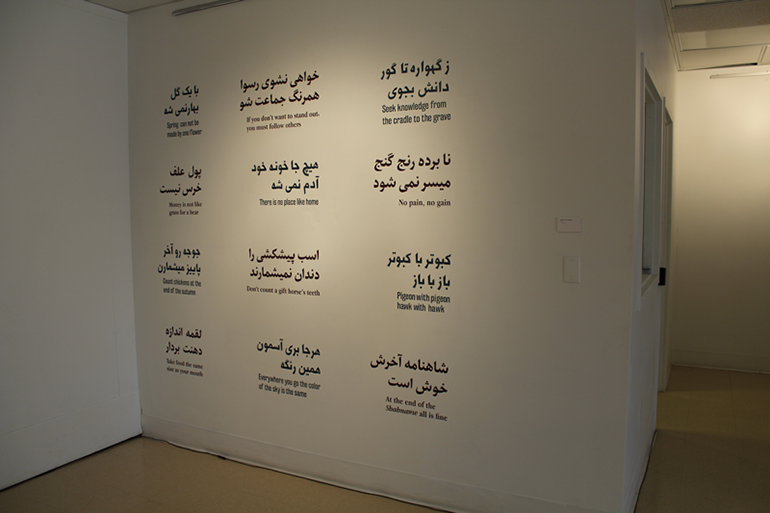 ز گهواره تا گور
دانش بجوی
Seek knowledge from
the cradle to the grave
خواهی نشوی رسوا
همرنگ جماعت شو
If you don't want to stand out,
you must follow others
با یک گل
بهار نمی شه
Spring can not be
made by one flower
نا برده رنج گنج
میسر نمی شود
No pain, no gain
هیچ جا خونه خود
آدم نمی شه
There is no place like home
پول علف
خرس نیست
Money is not like
grass for a bear
کبوتر با کبوتر
باز با باز
Pigeon with pigeon
hawk with hawk
اسب پیشکشی را
دندان نمیشمارند
Don't count a gift horse's teeth
جوجه رو آخر
پاییز میشمارن
Count chickens at the
end of the autumn
شاهنامه آخرش
خوش است
At the end of the
Shahname all is fine
هرجا بری آسمون
همین رنگه
Everywhere you go the color
of the sky is the same
لقمه اندازه
دهنت بردار
Take food the same
size as your mouth